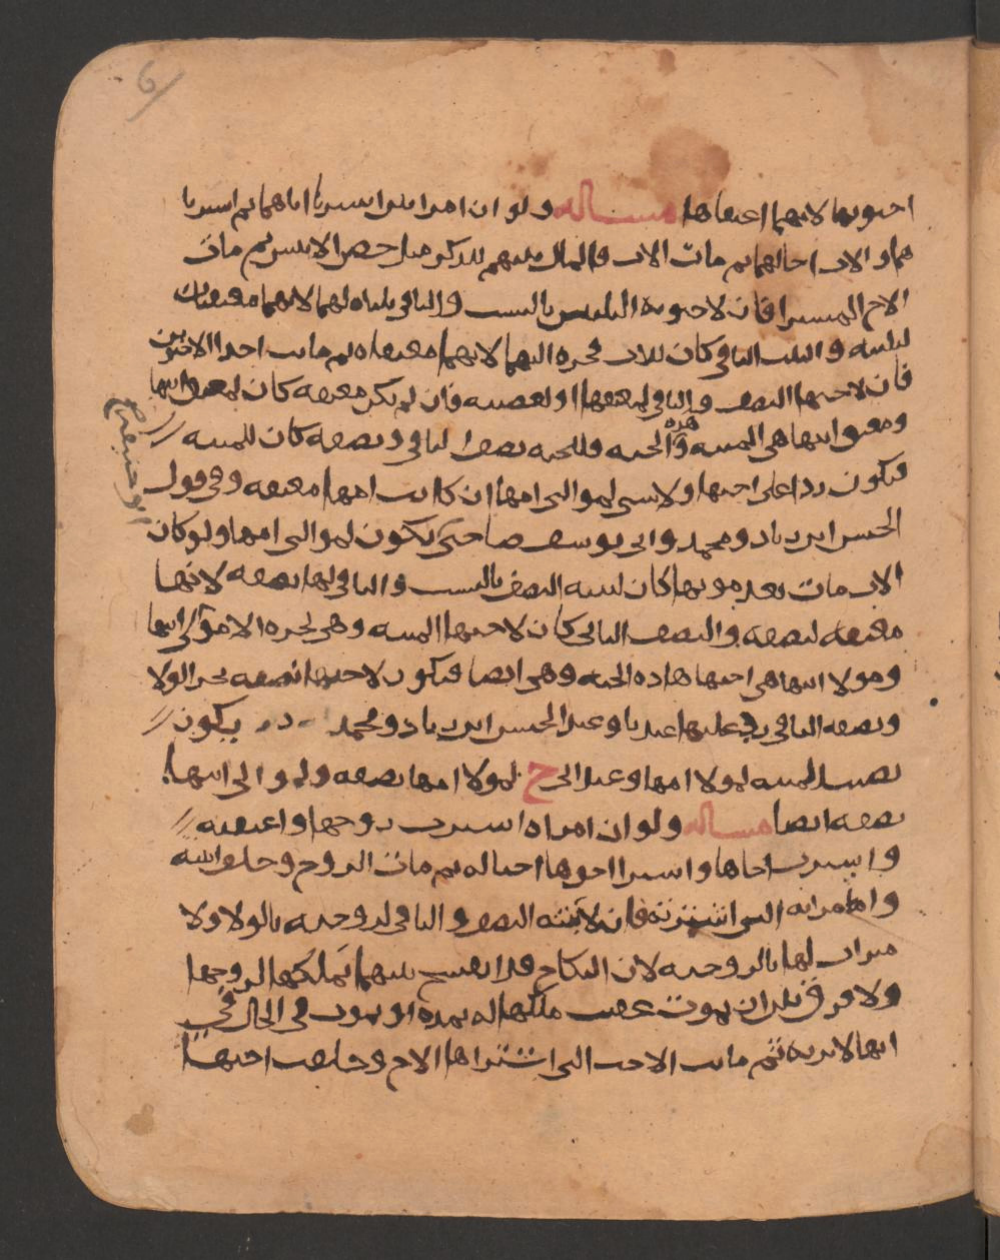 6
اخويها لانهما اعتقاها مسالة ولو ان امراتين اشتريا اباهما ثم اشتريا
هما والاب اخا لهما ثم مات الاب فالمال بينهم للذكر مثل حظ الانثيين ثم مات
الاخ المشترا فان لاختيه الثلثين بالنسب والباقي ثلثاه لهما لانهما معتقتان
لثلثيه والثلث الباقي كان للاب فجره اليهما لانهما معتقتاه ثم ماتت احدا الاختين
فان لاختها النصف والباقي لمعتقها او لعصبته فان لم يكن معتقه كان لمعتق ابيها
ومعتق ابيها هي الميته وهذه الحيه فللحيه نصف الباقي ونصفه كان للميته
فيكون ردا على اختها ولا شي لموالي امها ان كانت امها معتقه وفي قول
الحسن ابن زياد ومحمد وابي يوسف صاحبي يكون لموالي امها ولو كان
الاب مات بعد موتها كان لبنته النصف بالنسب والباقي لها نصفه لانها
معتقه لنصفه والنصف الثاني كان لاختها الميته وهي تجره الا موالي ابيها
ومولا ابيها هي اختها هاذه الحيه وهي ايضا فيكون لاختها نصفه بجر الولا
ونصفه الباقي يرد عليها عند وعند الحسن ابن زياد ومحمد يكون
نصيب الميته لمولا امها وعند الحرح لمولا امها نصفه ولموالي ابيها
نصفه ايضا مسالة ولو ان امراه اشترت زوجها واعتقته
واشترت اخاها واشترا اخوها اختا له ثم مات الزوج وخلف ابنته
وامراته التي اشترته فان لابنته النصف والباقي لزوجته بالولا ولا
ميراث لها بالزوجيه لان النكاح قد انفسخ بينهما بملكها لزوجها
ولا فرق بين ان يموت عقيب ملكها له بمده او يموت في الحال في
انها لا ترثه ثم ماتت الاخت التي اشتراها الاخ وخلفت اختها
ابو حنيفة